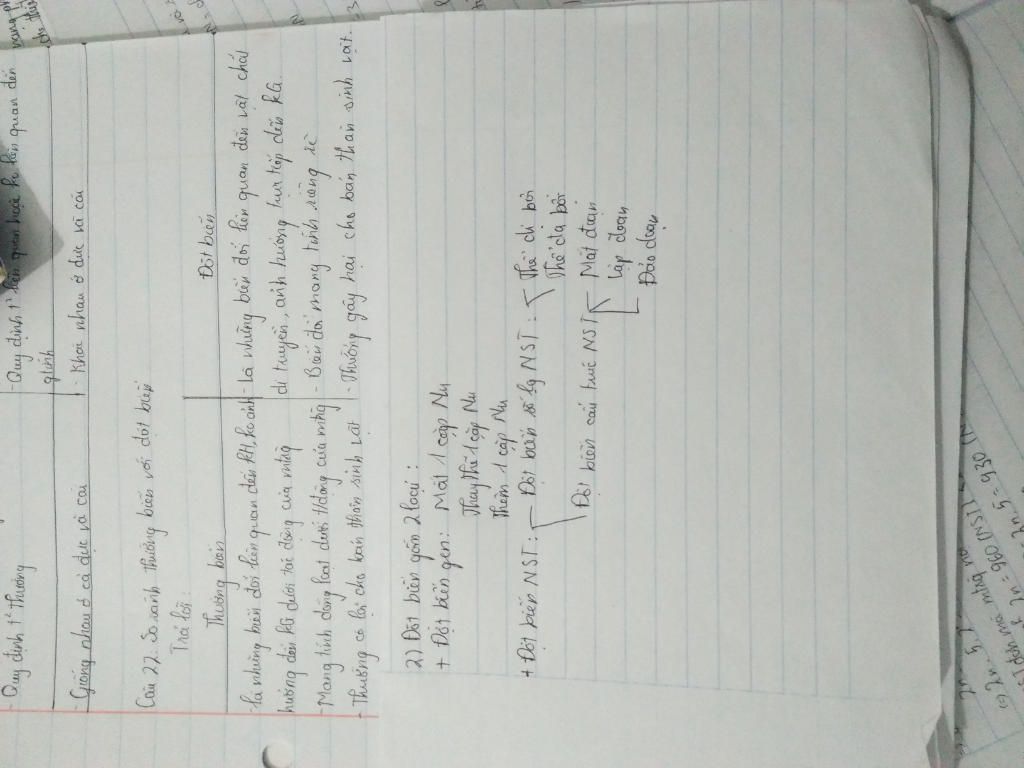 - Quy định t² thường
- Quy định t² liên quan hoặc ko liên quan đến
giới
- Giống nhau ở cả đực và cái
- Khác nhau ở đực và cái
Câu 22. So sánh thường biến với đột biến
Trả lời:
Thường biến
Đột biến
- là những biến đổi liên quan đến KH, ko ảnh
hưởng đến KG dưới tác động của mtrg
- Mang tính đồng loạt dưới t/động của mtrg
- Thường có lợi cho bản thân sinh vật
- là những biến đổi liên quan đến vật chất
di truyền, ảnh hưởng trực tiếp đến KG.
- Biến đổi mang tính riêng rẽ
- Thường gây hại cho bản thân sinh vật.
2) Đột biến gồm 2 loại:
+ Đột biến gen: Mất 1 cặp Nu
Thay thế 1 cặp Nu
Thêm 1 cặp Nu
+ Đột biến NST: Đột biến số lg NST: Thể dị bội
Thể đa bội
Đột biến cấu trúc NST Mất đoạn
Lặp đoạn
Đảo đoạn